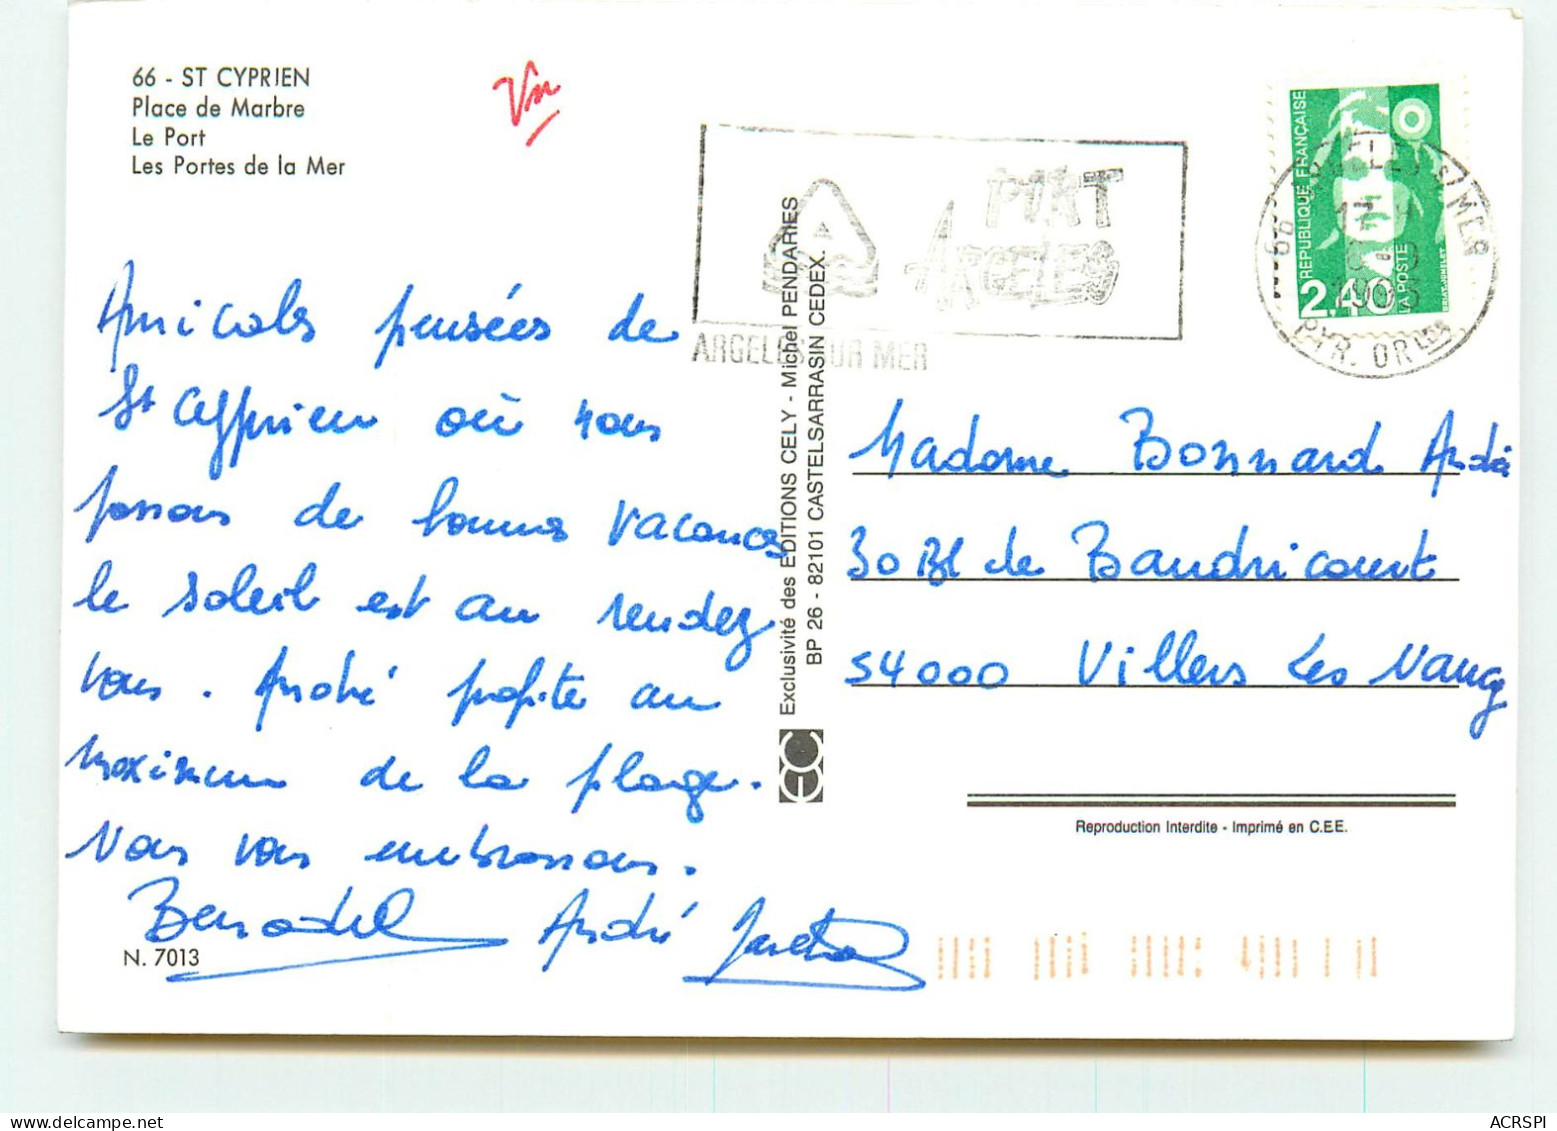 66 - ST CYPRIEN
Place de Marbre
Le Port
Les Portes de la Mer
Vn
PORT
ARGELES
ARGELES SUR MER
66 ARGELES S/MER
PYR. ORLES
RÉPUBLIQUE FRANÇAISE
2.40
LA POSTE
Amicales pensées de
St Cyprien où nous
passons de bonnes vacances
le soleil est au rendez
vous. André profite au
maximum de la plage.
Nous vous embrassons.
André
N. 7013
Exclusivité des EDITIONS CELY - Michel PENDARIES
BP 26 - 82101 CASTELSARRASIN CEDEX.
Madame Bonnard André
30 Bl de Baudricourt
54000 Villers Les Nancy
Reproduction Interdite - Imprimé en C.E.E.
ACRSPI